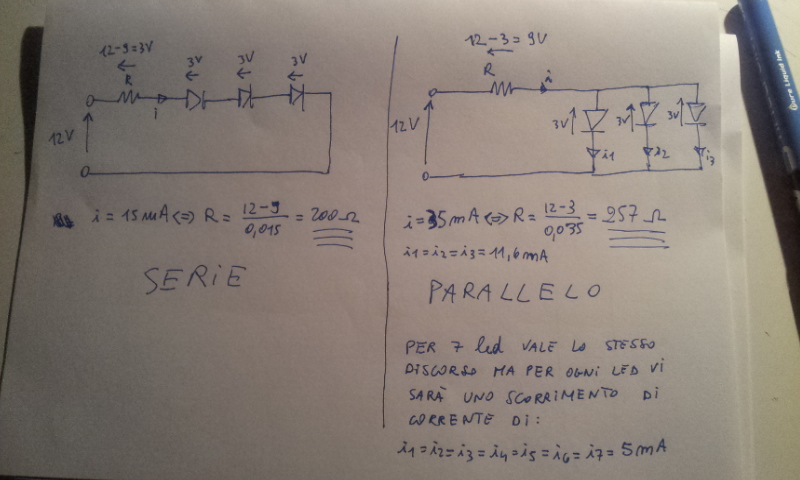 12-9=3V
R
i
3V
3V
3V
12V
i=15mA⇔R= 12-9 / 0,015 = 200Ω
SERIE
12-3=9V
R
i
12V
3V
3V
3V
i1
i2
i3
i=35mA⇔R= 12-3 / 0,035 = 257 Ω
i1=i2=i3=11,6mA
PARALLELO
PER 7 led VALE LO STESSO
DISCORSO MA PER OGNI LED VI
SARÀ UNO SCORRIMENTO DI
CORRENTE DI:
i1=i2=i3=i4=i5=i6=i7=5mA
Pure Liquid Ink